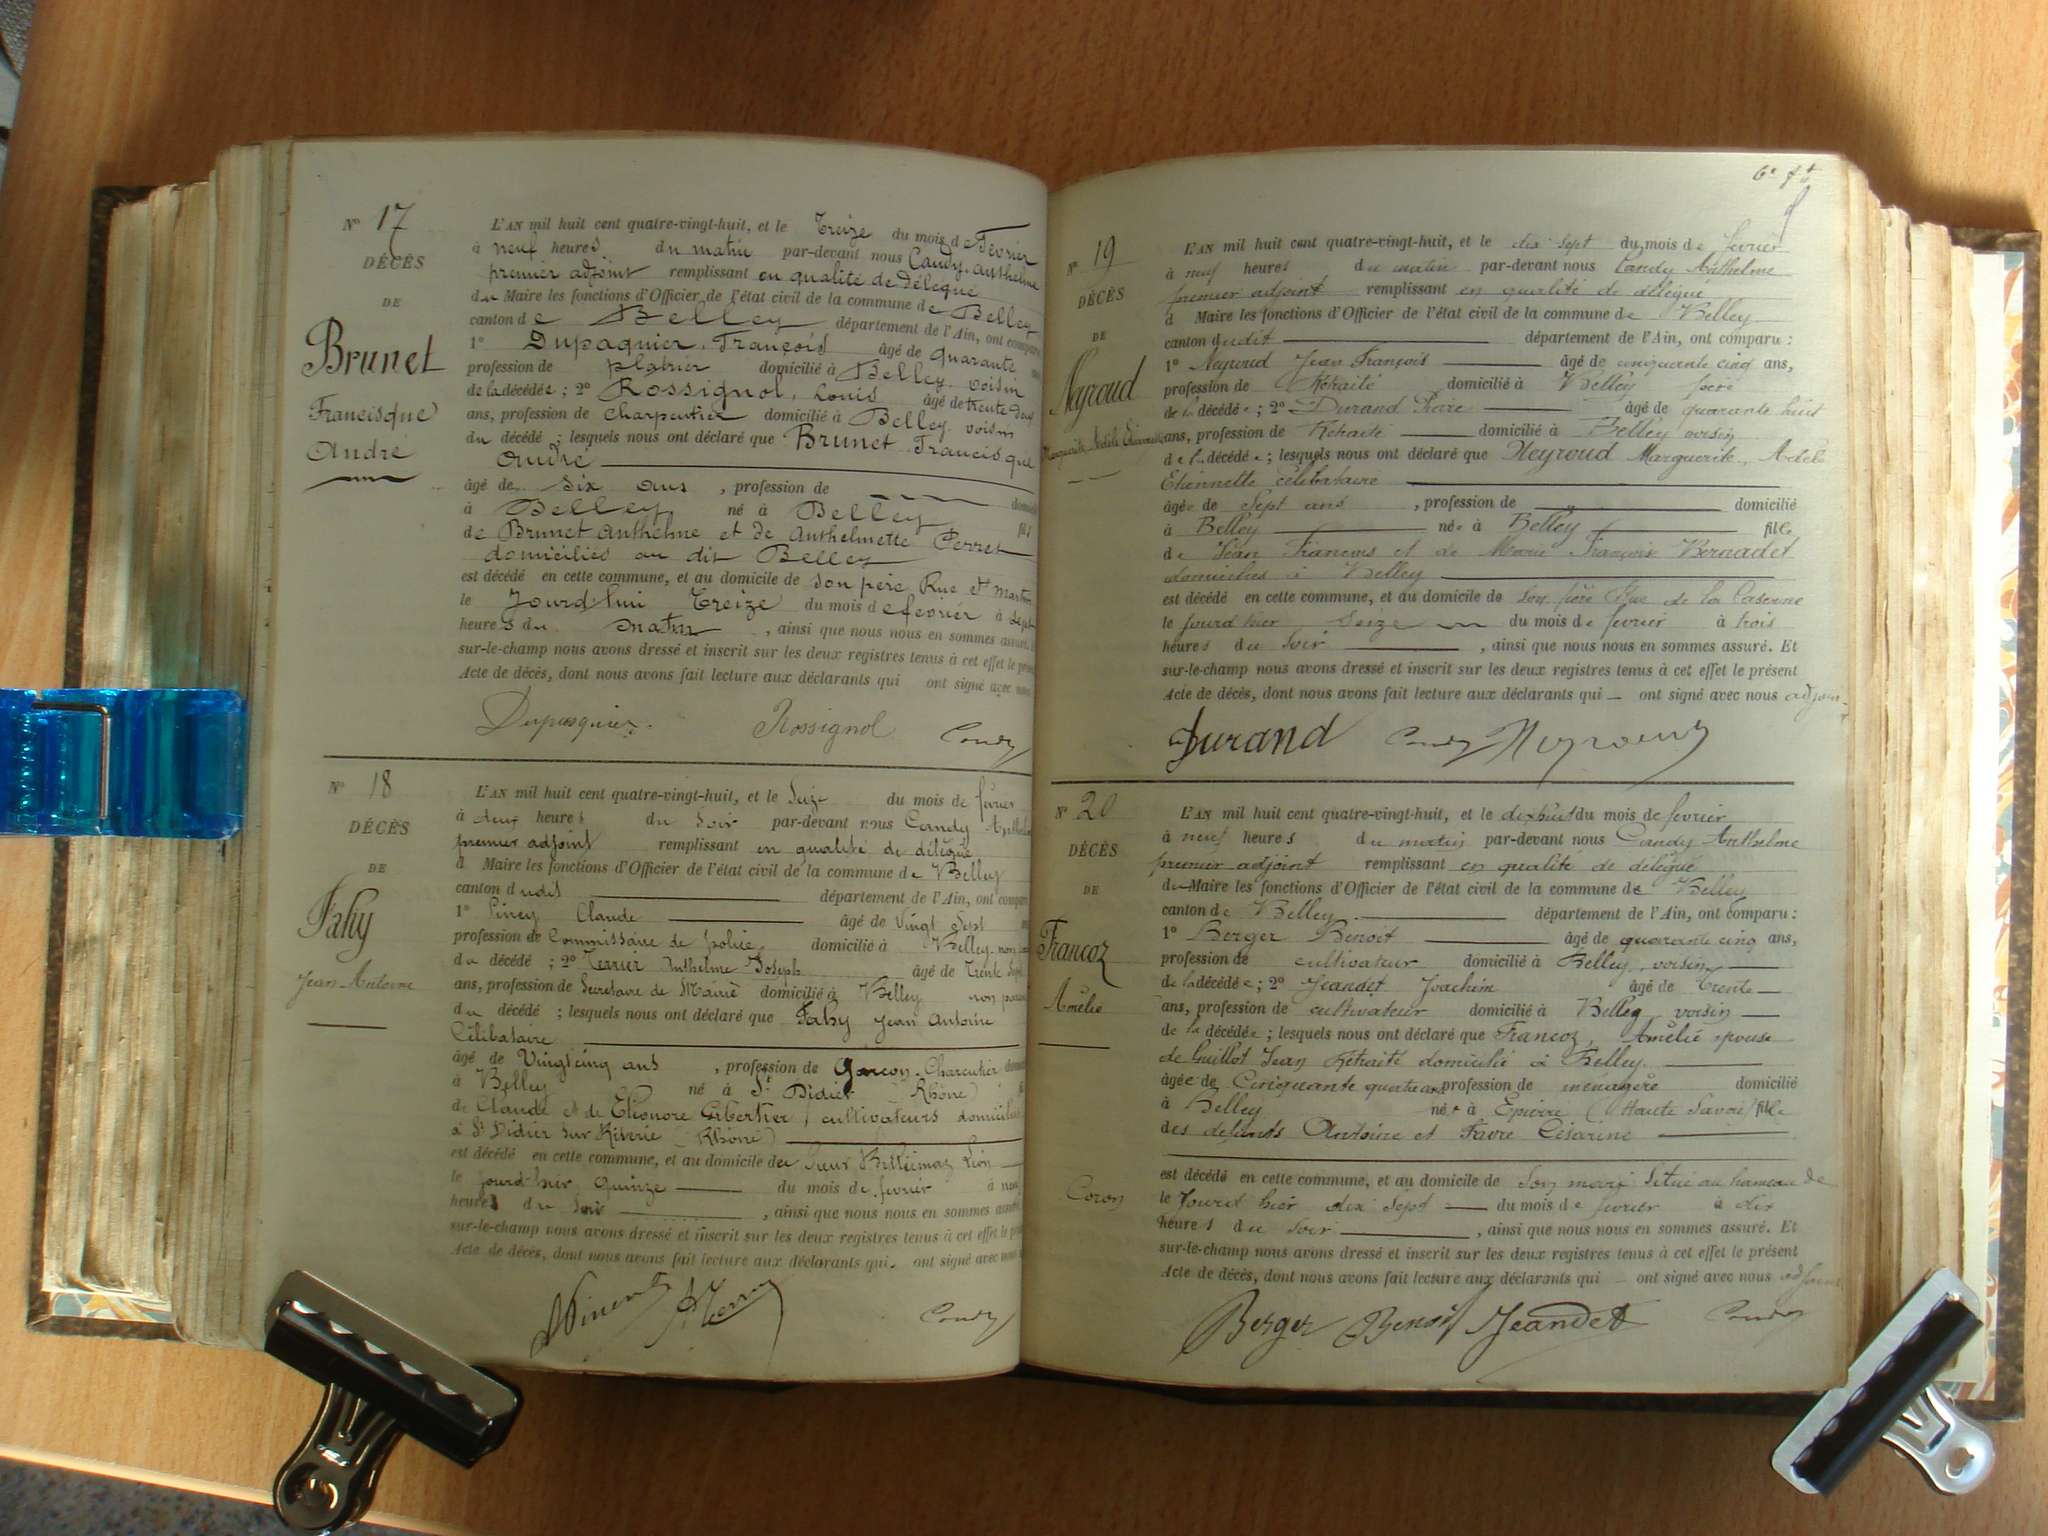 N° 17
DÉCÈS
DE
Brunet
Francisque
André
L'AN mil huit cent quatre-vingt-huit, et le Treize du mois de Fevrier
à neuf heures du matin par-devant nous Candy, Anthelme
premier adjoint remplissant en qualité de délégué
du Maire les fonctions d'Officier de l'état civil de la commune de Belley
canton de Belley, département de l'Ain, ont comparu
1° Dupasquier, François âgé de quarante
profession de platrier domicilié à Belley, voisin
de la décédée; 2° Rossignol, Louis âgé de trente deux
ans, profession de charpentier domicilié à Belley, voisin
du décédé; lesquels nous ont déclaré que Brunet Francisque
André
âgé de six ans, profession de domicilié
à Belley né à Belley fils
de Brunet Anthelme et de Anthelmette Perret
domiciliés au dit Belley
est décédé en cette commune, et au domicile de son père Rue St Martin
le Jourd'hui Treize du mois de fevrier à sept
heures du matin, ainsi que nous nous en sommes assuré.
sur-le-champ nous avons dressé et inscrit sur les deux registres tenus à cet effet le présent
Acte de décès, dont nous avons fait lecture aux déclarants qui ont signé avec nous
Dupasquier. Rossignol Candy
N° 18
DÉCÈS
DE
Fahy
Jean Antoine
L'AN mil huit cent quatre-vingt-huit, et le Seize du mois de fevrier
à deux heures du soir par-devant nous Candy Anthelme
premier adjoint remplissant en qualité de délégué
d Maire les fonctions d'Officier de l'état civil de la commune de Belley
canton dudit département de l'Ain, ont comparu
1° Claude âgé de Vingt Sept
profession de Commissaire de police domicilié à Belley, non
du décédé; 2° Terrier Anthelme Joseph âgé de Trente Sept
ans, profession de Secretaire de Mairie domicilié à Belley non parent
du décédé; lesquels nous ont déclaré que Fahy Jean Antoine
Célibataire
âgé de Vingt cinq ans, profession de Garçon Charcutier domicilié
à Belley né à St Didier (Rhône)
de Claude et de Eléonore cultivateurs domiciliés
à St Didier sur Riverie (Rhône)
est décédé en cette commune, et au domicile de Sieur Léon
le jourd hier quinze du mois de fevrier à neuf
heures du soir, ainsi que nous nous en sommes assuré
sur-le-champ nous avons dressé et inscrit sur les deux registres tenus à cet effet le présent
Acte de décès, dont nous avons fait lecture aux déclarants qui ont signé avec nous
Candy
6e ft
N° 19
DÉCÈS
DE
Neyroud
Marguerite Adèle Etiennette
L'AN mil huit cent quatre-vingt-huit, et le dix sept du mois de fevrier
à neuf heures du matin par-devant nous Candy Anthelme
premier adjoint remplissant en qualité de délégué
d Maire les fonctions d'Officier de l'état civil de la commune de Belley
canton dudit département de l'Ain, ont comparu :
1° Neyroud Jean François âgé de cinquante cinq ans,
profession de Retraité domicilié à Belley père
de la décédée; 2° Durand âgé de quarante huit
ans, profession de Retraité domicilié à Belley voisin
de la décédée; lesquels nous ont déclaré que Neyroud Marguerite, Adèle
Etiennette célibataire
âgée de Sept ans, profession de domicilié
à Belley née à Belley fille
de Jean François et de Marie François Bernadet
domiciliés à Belley
est décédé en cette commune, et au domicile de son père Rue de la Caserne
le jourd hier Seize du mois de fevrier à trois
heures du Soir, ainsi que nous nous en sommes assuré. Et
sur-le-champ nous avons dressé et inscrit sur les deux registres tenus à cet effet le présent
Acte de décès, dont nous avons fait lecture aux déclarants qui ont signé avec nous adjoint
Durand Candy Neyroud
N° 20
DÉCÈS
DE
Francoz
Amélie
L'AN mil huit cent quatre-vingt-huit, et le dix huit du mois de fevrier
à neuf heures du matin par-devant nous Candy Anthelme
premier adjoint remplissant en qualité de délégué
du Maire les fonctions d'Officier de l'état civil de la commune de Belley
canton de Belley département de l'Ain, ont comparu :
1° Berger Benoit âgé de quarante cinq ans,
profession de cultivateur domicilié à Belley, voisin
de la décédée; 2° Jeandet Joachim âgé de Trente
ans, profession de cultivateur domicilié à Belley voisin
de la décédée; lesquels nous ont déclaré que Francoz, Amélie epouse
de Guillot Jean Retraité domicilié à Belley
âgée de Cinquante quatre ans profession de ménagère domicilié
à Belley née à (Haute Savoie) fille
des défunts Antoine et Favre Césarine
est décédé en cette commune, et au domicile de Son mari Situé au hameau de
Coron
le Jourd hier dix Sept du mois de fevrier à dix
heures du soir, ainsi que nous nous en sommes assuré. Et
sur-le-champ nous avons dressé et inscrit sur les deux registres tenus à cet effet le présent
Acte de décès, dont nous avons fait lecture aux déclarants qui ont signé avec nous adjoint
Berger Benoit Jeandet Candy